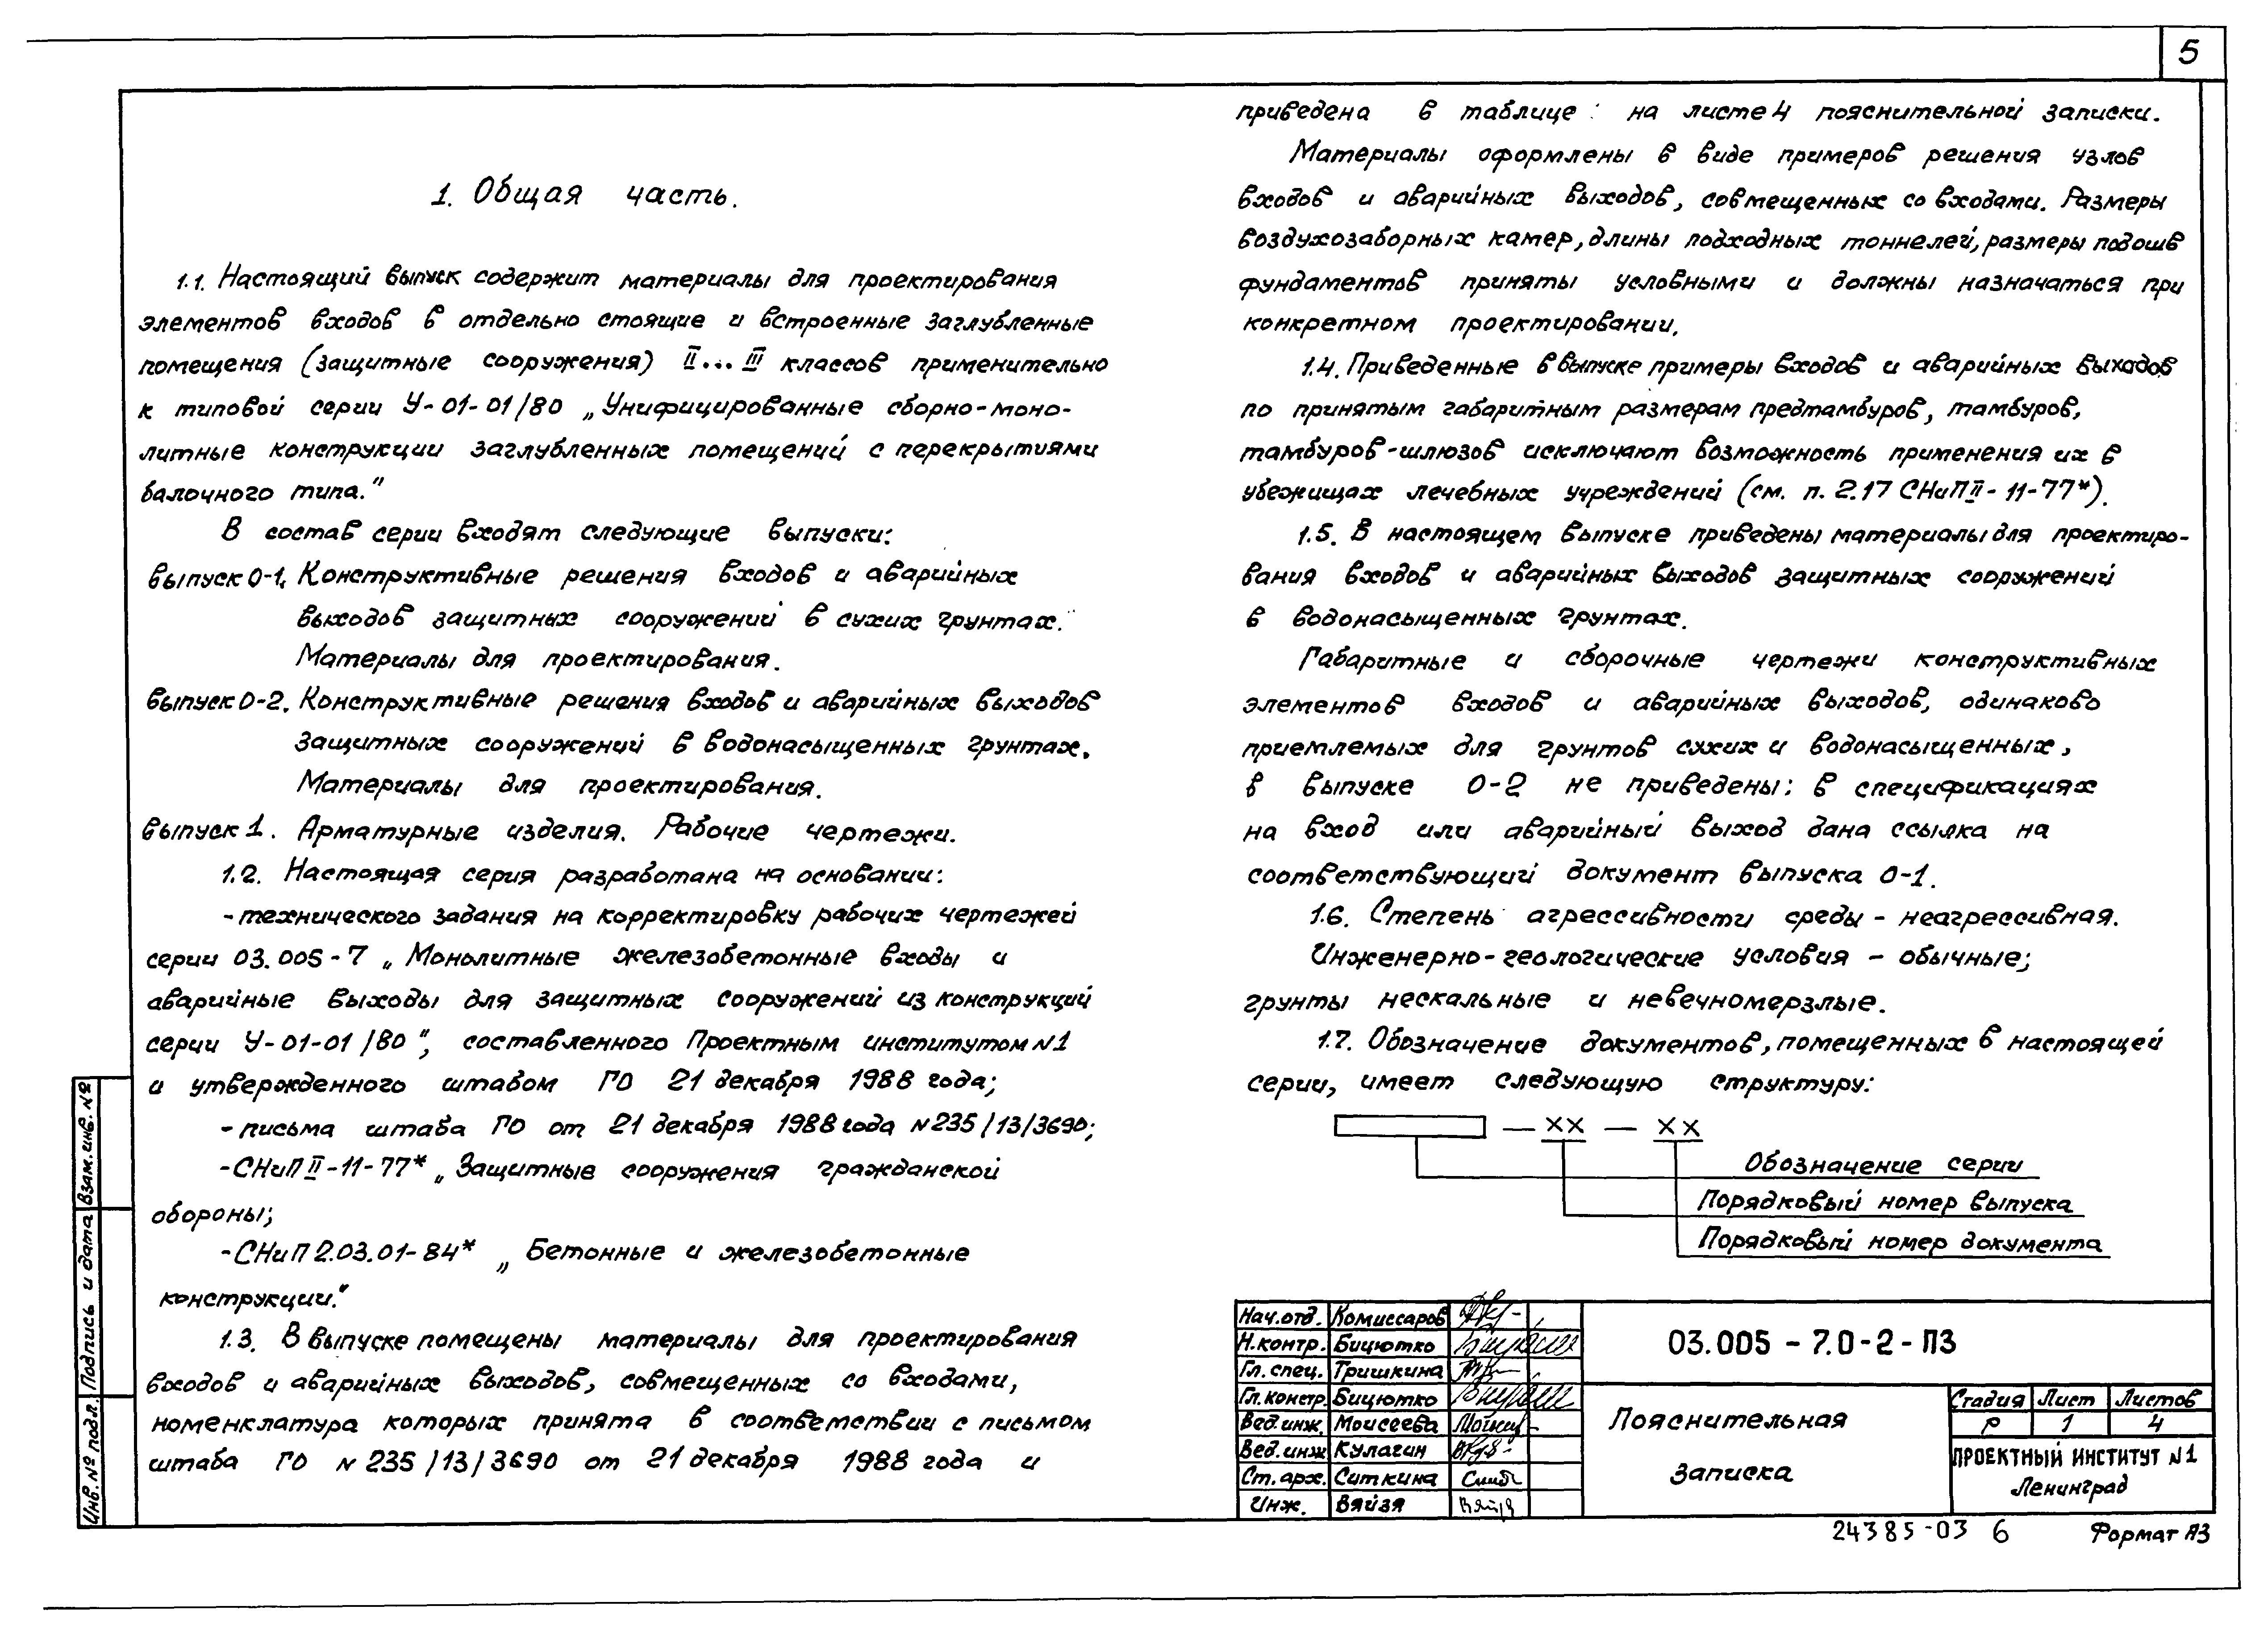 5
1. Общая часть.
1.1. Настоящий выпуск содержит материалы для проектирования
элементов входов в отдельно стоящие и встроенные заглубленные
помещения (защитные сооружения) II... III классов применительно
к типовой серии У-01-01/80 „Унифицированные сборно-моно-
литные конструкции заглубленных помещений с перекрытиями
балочного типа."
В состав серии входят следующие выпуски:
выпуск 0-1. Конструктивные решения входов и аварийных
выходов защитных сооружений в сухих грунтах.
Материалы для проектирования.
выпуск 0-2. Конструктивные решения входов и аварийных выходов
защитных сооружений в водонасыщенных грунтах.
Материалы для проектирования.
выпуск 1. Арматурные изделия. Рабочие чертежи.
1.2. Настоящая серия разработана на основании:
-технического задания на корректировку рабочих чертежей
серии 03.005-7 „Монолитные железобетонные входы и
аварийные выходы для защитных сооружений из конструкций
серии У-01-01/80", составленного Проектным институтом N1
и утвержденного штабом ГО 21 декабря 1988 года;
-письма штаба ГО от 21 декабря 1988 года N235/13/3690;
-СНиП II-11-77* „Защитные сооружения гражданской
обороны;
-СНиП 2.03.01-84* „Бетонные и железобетонные
конструкции."
1.3. В выпуске помещены материалы для проектирования
входов и аварийных выходов, совмещенных со входами,
номенклатура которых принята в соответствии с письмом
штаба ГО N 235/13/3690 от 21 декабря 1988 года и
приведена в таблице на листе 4 пояснительной записки.
Материалы оформлены в виде примеров решения узлов
входов и аварийных выходов, совмещенных со входами. Размеры
воздухозаборных камер, длины подходных тоннелей, размеры подошв
фундаментов приняты условными и должны назначаться при
конкретном проектировании.
1.4. Приведенные в выпуске примеры входов и аварийных выходов
по принятым габаритным размерам предтамбуров, тамбуров,
тамбуров-шлюзов исключают возможность применения их в
убежищах лечебных учреждений (см. п. 2.17 СНиП II-11-77*).
1.5. В настоящем выпуске приведены материалы для проектиро-
вания входов и аварийных выходов защитных сооружений
в водонасыщенных грунтах.
Габаритные и сборочные чертежи конструктивных
элементов входов и аварийных выходов, одинаково
приемлемых для грунтов сухих и водонасыщенных,
в выпуске 0-2 не приведены; в спецификациях
на вход или аварийный выход дана ссылка на
соответствующий документ выпуска 0-1.
1.6. Степень агрессивности среды - неагрессивная.
Инженерно-геологические условия - обычные;
грунты нескальные и невечномерзлые.
1.7. Обозначение документов, помещенных в настоящей
серии, имеет следующую структуру:
— ХХ — ХХ
Обозначение серии
Порядковый номер выпуска
Порядковый номер документа
Нач.отд. Комиссаров
Н.контр. Бицютко
Гл. спец. Тришкина
Гл. констр. Бицютко
Вед.инж. Моисеева
Вед.инж Кулагин
Ст. арх. Ситкина
Инж. Вяйзя
03.005-7.0-2-ПЗ
Пояснительная
записка
Стадия Лист Листов
Р 1 4
ПРОЕКТНЫЙ ИНСТИТУТ N1
Ленинград
Взам.инв. №
Подпись и дата
Инв. № подл.
24385-03 6 Формат А3